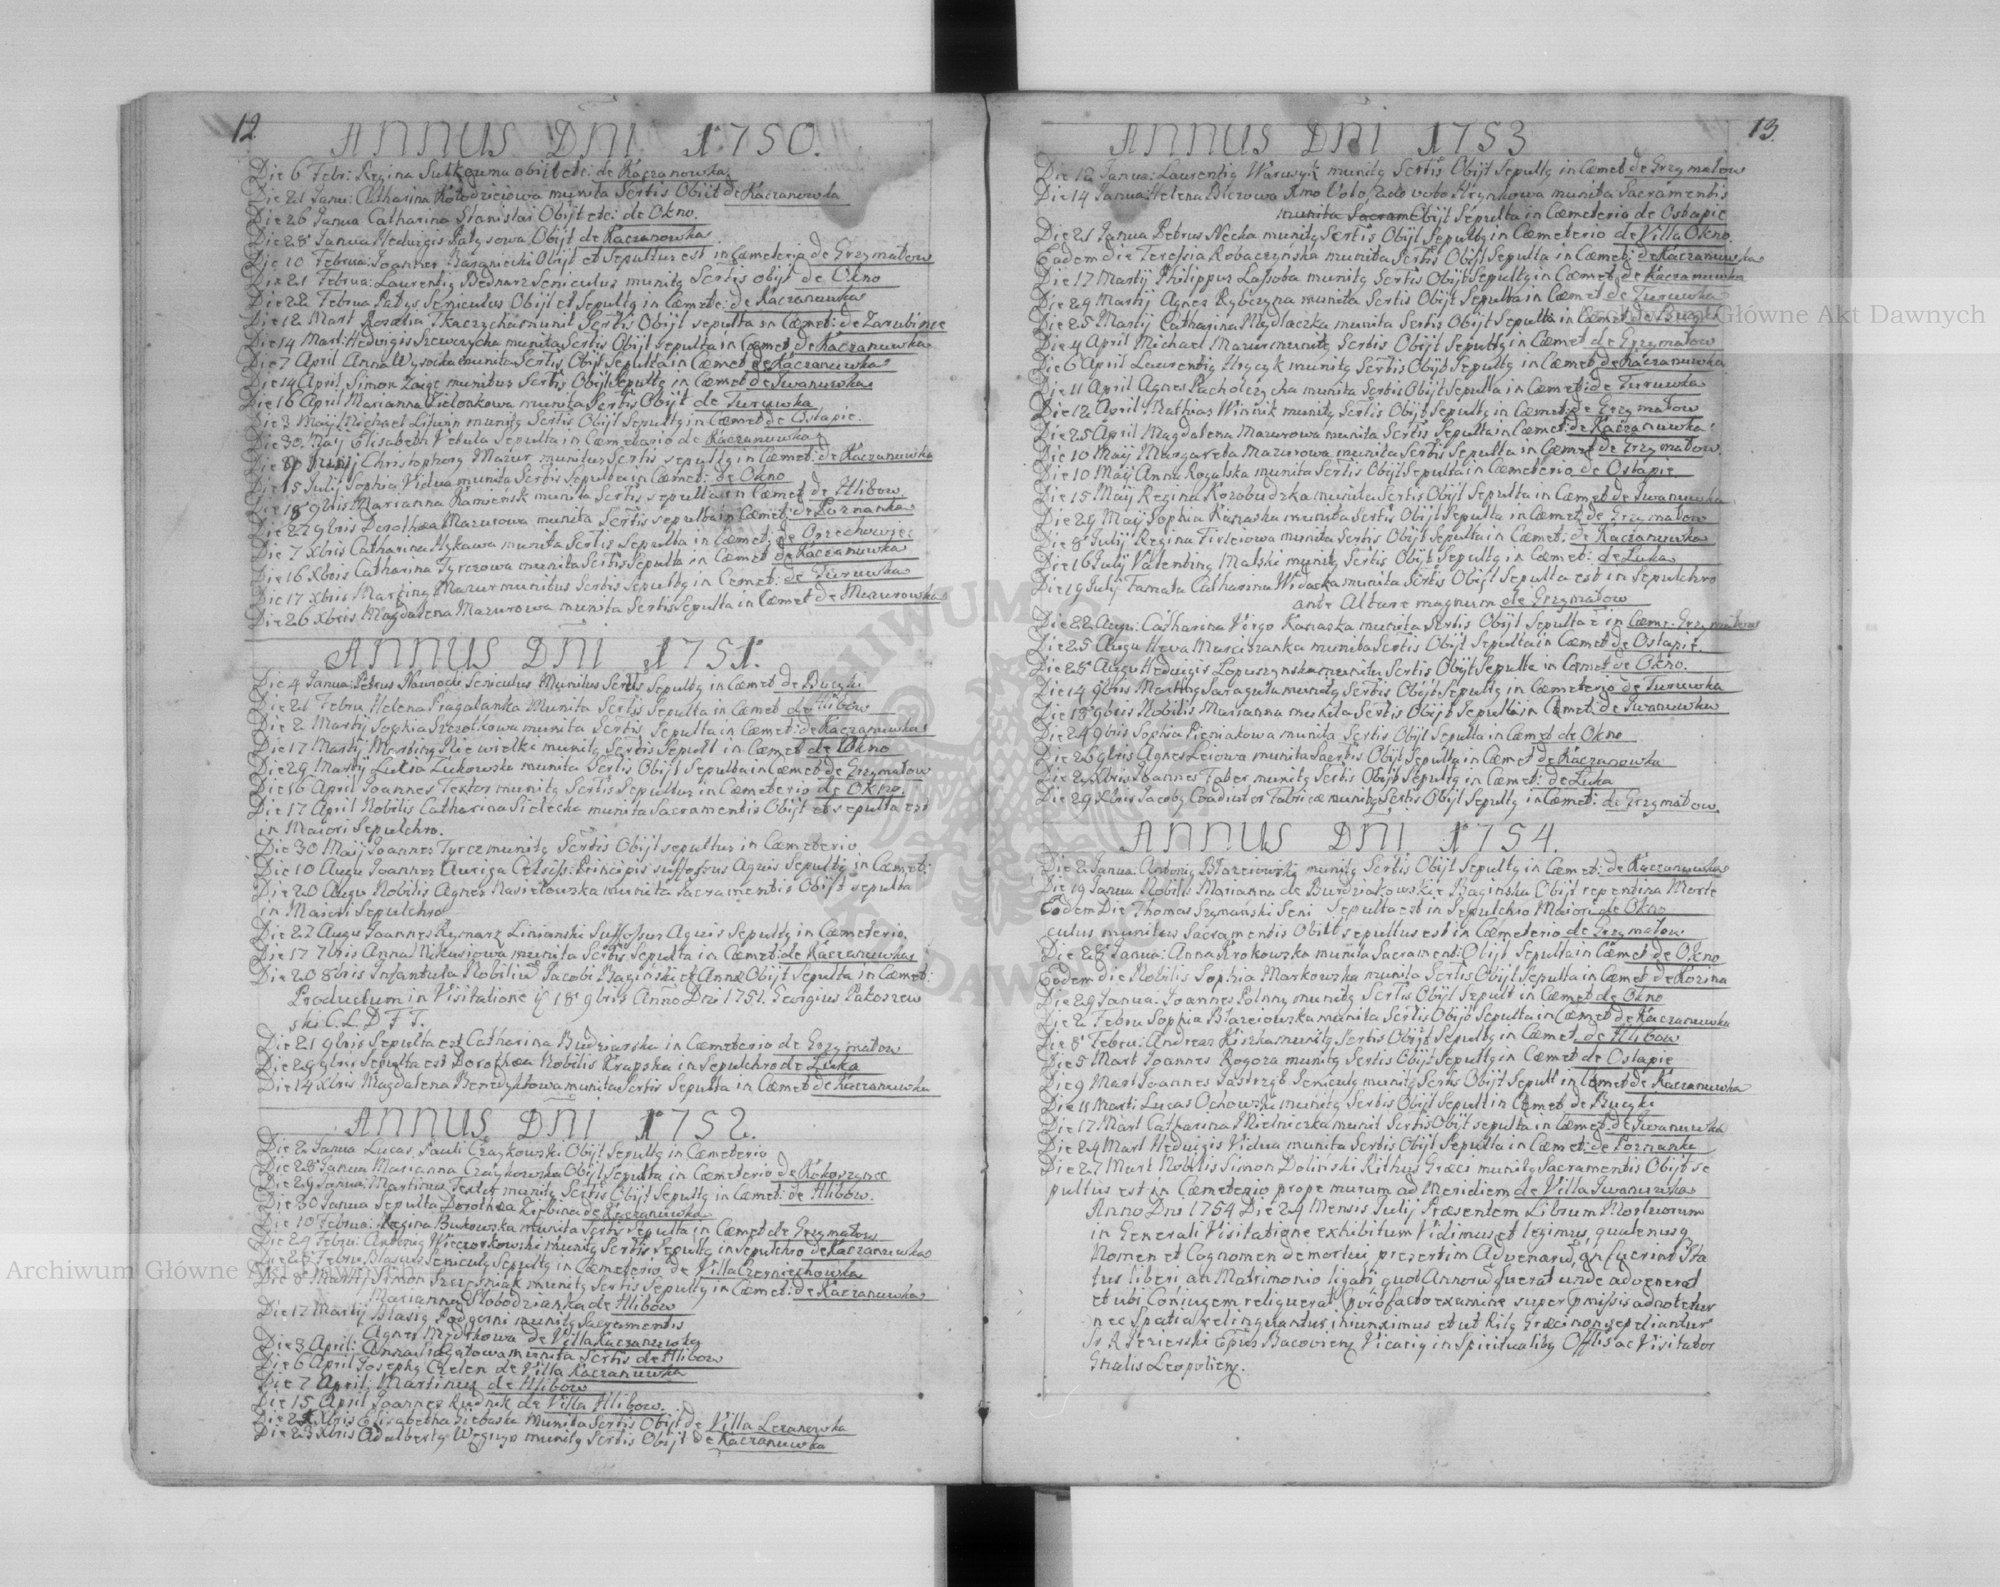 12.
ANNUS DNI 1750.
Die 6 Febr: Regina Sutkowna obijt etc: de Kaczanowka
Die 21 Janu: Catharina Kołodzieiowa munita Scrtis Obiit de Kaczanowka
Die 26 Janua Catharina Stanislai Obijt etc: de Okno.
Die 28 Janua Hedvigis Patysowa Obijt de Kaczanowka
Die 10 Februa: Joannes Baganiecki Obijt et Sepultus est in Cæmeterio de Grzymałow
Die 21 Februa: Laurentiq Bednarz Seniculus munitq Scrtis obijt de Okno
Die 22 Februa Patys Seniculus Obijt et Sepultq in Cæmete: de Kaczanuwka
Die 12 Mart Rozalia Tkaczycha munit Scrtis Obijt sepulta in Cæmet: de Zarubince
Die 14 Mart: Hedvigis Szewczycha munita Scrtis Obijt Sepulta in Cæmet de Kaczanuwka
Die 7 April Anna Wysocka munita Scrtis Obijt Sepulta in Cæmet de Kaczanuwka
Die 14 April Simon Zaięc munitus Scrtis Obijt Sepultq in Cæmet de Iwanuwka
Die 16 April Marianna Zielonkowa munita Scrtis Obijt de Turuwka
Die 3 Maij Michael munitq Scrtis Obijt Sepultq in Cæmet de Ostapie.
Die 30. Maij Elisabeth Vetula Sepulta in Cæmeterio de Kaczanuwka
Die Christophorq Mazur munitus Scrtis sepultq in Cæmet: de Kaczanuwka
Die 15 Julij Sophia Vidua munita Scrtis Sepulta in Cæmet: de Okno
Die 18 9bris Marianna Kamieńsk munita Scrtis sepulta in Cæmet de Hlibow
Die 22 9bris Dorothea Mazurowa munita Scrtis sepulta in Cæmet: de Poznanka
Die 7 Xbris Catharina Hykawa munita Scrtis Sepulta in Cæmet: de Orzechowiec
Die 16 Xbris Catharina Tyrczowa munita Scrtis Sepulta in Cæmet de Kaczanuwka
Die 17 Xbris Marcinq Mazur munitus Scrtis Sepultq in Cemet: de Turuwka
Die 26 Xbris Magdalena Mazurowa munita Scrtis Sepulta in Cæmet de Mazurowka
ANNUS DNI 1751.
Die 4 Janua: Petrus Nawrocki Seniculus Munitus Scrtis Sepultq in Cæmet de Bucyki
Die 21 Febru Helena Pragalanka Munita Scrtis Sepulta in Cæmet de Hlibow
Die 2 Martij Sophia Szczotkowa munita Scrtis Sepulta in Cæmet: de Kaczanuwka
Die 17 Martij Martinq Niewielki munitq Scrtis Sepult in Cæmet de Okno
Die 29 Martij Lucia Zukowska munita Scrtis Obijt Sepulta in Cæmet de Grzymałow
Die 16 April Joannes Textor munitq Scrtis Sepultus in Cæmeterio de Okno.
Die 17 April Nobilis Catharina Sielecka munita Sacramentis Obijt et sepulta est
in Maiori Sepulchro.
Die 30 Maij Joannes Tyrcz munitq Scrtis Obijt sepultus in Cæmeterio
Die 10 Augu Joannes Auriga Celsiss: Principis suffossus Aquis Sepultq in Cæmet:
Die 20 Augu Nobilis Agnes Nasiełowska munita Sacramentis Obijt sepulta
in Maiori Sepulchro
Die 22 Augu Joannes Rymarz Linianski Suffossus Aquis Sepultq in Cæmeterio
Die 17 7bris Anna Nikusiowa munita Scrtis Sepulta in Cæmet: de Kaczanuwka
Die 20 8bris Infantula Nobiliu Jacobi Bagiński et Annæ Obijt Sepulta in Cæmet:
Productum in Visitatione 18 9bris Anno Dni 1751. Georgius Pakoszew
ski C. L. D F T.
Die 21 9bris Sepulta est Catharina Budziarska in Cæmeterio de Grzymałow
Die 29 9bris Sepulta est Dorothea Nobilis Krapska in Sepulchro de Łuka
Die 14 Xbris Magdalena Benedyktowa munita Scrtis Sepulta in Cæmet de Kaczanuwka
ANNUS DNI 1752.
Die 2 Janua Lucas Pauli Czaykowski Obijt Sepultq in Cæmeterio
Die 28 Janua Marianna Czaykowska Obijt Sepulta in Cæmeterio de Kokoszynce
Die 29 Janua: Martinus Textor munitq Scrtis Obijt Sepultq in Cæmet: de Hlibow.
Die 30 Janua Sepulta Dorothea de Kaczanuwka
Die 10 Februa: Regina Bukowska munita Scrtis Sepulta in Cæmet de Grzymałow
Die 24 Febru: Antoniq Wieczorkowski munitq Scrtis Sepultq in Sepulchro de Kaczanuwka
Die 26 Febru Blasius Seniculq Sepultq in Cæmeterio de Villa Czerniechowka
Die 8 Martij Simon Szczesniak munitq Scrtis Sepultq in Cæmet: de Kaczanuwka
Marianna Słobodzianka de Hlibow
Die 17 Martij Blasiq Podgorni munitq Sacramentis
Agnes Mydłkowa de Villa Kaczanuwka
Die 3 April: munita Scrtis de Hlibow
Die 6 April Josephq Cyelen de Villa Kaczanuwka
Die 7 April Martinus de Hlibow
Die 15 April Joannes Rudnik de Villa Hlibow.
Die 21 Xbris Elisabetha Siebaska munita Scrtis Obijt de Villa Lezanowka
Die 23 Xbris Adalbertq Węgrzn munitq Scrtis Obijt de Kaczanuwka
13.
ANNUS DNI 1753
Die 12 Janua: Laurentiq Waruszyk munitq Scrtis Obijt Sepultq in Cæmet de Grzymałow
Die 14 Janua: Helena Bierowa Hrynkowa munita Sacramentis
munita Sacram Obijt Sepulta in Cæmeterio de Ostapie
Die 21 Janua Petrus Necka munitq Scrtis Obijt Sepultq in Cæmeterio de Villa Okno
Eadem die Teressia Robaczyńska munita Scrtis Obijt Sepulta in Cæmet: de Kaczanuwka
Die 17 Martij Philippus Lassoba munitq Scrtis Obijt Sepultq in Cæmet de Kaczanuwka
Die 29 Martij Agnes Rybczyna munita Scrtis Obijt Sepulta in Cæmet de Turuwka
Die 25 Martij Catharina Mydlaczka munita Scrtis Obijt Sepulta in Cæmet de Bucyki
Die 4 April Michael Mazur munitq Scrtis Obijt Sepultq in Cæmet de Grzymałow
Die 6 April Laurentiq Hrycyk munitq Scrtis Obijt Sepultq in Cæmet de Kaczanuwka
Die 11 April Agnes Pachołczycha munita Scrtis Obijt Sepulta in Cæmet: de Turuwka
Die 12 April Mathias Winnik munitq Scrtis Obijt Sepultq in Cæmet: de Grzymałow
Die 25 April Magdalena Mazurowa munita Scrtis Sepulta in Cæmet: de Kaczanuwka
Die 10 Maij Margareta Mazurowa munita Scrtis Sepulta in Cæmet de Grzymałow
Die 10 Maij Anna Rogalska munita Scrtis Obijt Sepulta in Cæmeterio de Ostapie
Die 15 Maij Regina Kozobudzka munita Scrtis Obijt Sepulta in Cæmet de Iwanuwka
Die 29 Maij Sophia Kaszaska munita Scrtis Obijt Sepulta in Cæmet de Grzymałow
Die 8 Julij Regina Firleiowa munita Scrtis Obijt Sepulta in Cæmet: de Kaczanuwka
Die 16 Julij Valentinq Malski munitq Scrtis Obijt Sepultq in Cæmet: de Łuka
Die 19 Julij Famata Catharina Widacka munita Scrtis Obijt Sepulta est in Sepulchro
ante Altare magnum de Grzymałow
Die 22 Augu: Catharina Virgo Kaszaska munita Scrtis Obijt Sepulta e in Cæme. Grzymałow
Die 25 Augu Heva Marciszanka munita Scrtis Obijt Sepulta in Cæmet de Ostapie
Die 28 Augu Hedvigis Lopuszynska munita Scrtis Obijt Sepulta in Cæmet de Okno.
Die 14 9bris Martinq Saraguta munitq Scrtis Obijt Sepultq in Cæmeterio de Turuwka
Die 18 9bris Nobilis Marianna munita Scrtis Obijt Sepulta in Cæmet: de Iwanuwka
Die 24 9bris Sophia Pieniakowa munita Scrtis Obijt Sepulta in Cæmet de Okno
Die 26 9bris Agnes Leiowa munita Sacrtis Obijt Sepulta in Cæmet de Kaczanowka
Die Xbris Joannes Faber munitq Scrtis Obijt Sepultq in Cæmet: de Łuka
Die 29 Xbris Jacobq Coadiutor Fabricæ munitq Scrtis Obijt Sepultq in Cæmet: de Grzymałow.
ANNUS DNI 1754.
Die 2 Janua: Antoniq Błazeiowski munitq Scrtis Obijt Sepultq in Cæmet: de Kaczanuwka
Die 19 Janua Nobilis Marianna de Burdziakowskie Baginska Obijt repentina Morte
Eodem Die Thomas Szymański Seni Sepulta est in Sepulchro Maiori de Okno
culus munitus Sacramentis Obiit sepultus est in Cæmeterio de Grzymałow
Die 28 Janua: Anna Krokowska munita Sacrament: Obijt Sepulta in Cæmet de Okno
Eodem die Nobilis Sophia Markowska munita Scrtis Obijt Sepulta in Cæmet de Kozina
Die 29 Janua: Joannes Polnny munitq Scrtis Obijt Sepult in Cæmet de Okno
Die 2 Febru Sophia Błazeiowszka munita Scrtis Obijt Sepulta in Cæmet de Kaczanuwka
Die 8 Febru: Andreas Kiszka munitq Scrtis Obijt Sepultq in Cæmet. de Hlibow
Die 5 Mart Joannes Rogoza munitq Scrtis Obijt Sepultq in Cæmet de Ostapie
Die 9 Mart Joannes Jastrząb Seniculq munitq Scrtis Obijt Sepult in Cæmet de Kaczanuwka
Die 11 Marti Lucas Ochowski munitq Scrtis Obijt Sepult in Cæmet de Bucyki
Die 17 Mart Catharina Mielniczka munit Scrtis Obijt sepulta in Cæmet de Iwanuwka
Die 24 Mart Hedvigis Vidua munita Scrtis Obijt Sepulta in Cæmet: de Poznanki
Die 27 Mart Nobilis Simon Doliński Rithus Græci munitq Sacramentis Obijt se
pultus est in Cæmeterio prope murum ad Meridiem de Villa Iwanuwka
Anno Dni 1754 Die 24 Mensis Julij Præsentem Librum Mortuorum
in Generali Visitatione exhibitum Vidimus et legimus, quatenus q
Nomen et Cognomen demortui præsertim Advenarũ, an fuerint Sta
tus liberi, an Matrimonio ligati quot Annorũ fuerat unde advenerat
et ubi Conjugem reliquerat, facto examine super præmissis adnotetur
nec Spatia relinquantur, iniunximus et ut Ritq Græci non sepeliantur
Jezierski Epus Bacoviens Vicariq in Spiritualibq Offlis ac Visitator
Gnalis Leopoliens.
Archiwum Główne Akt Dawnych
Archiwum Główne Akt Dawnych
ARCHIWUM GŁÓWNE AKT DAWNYCH